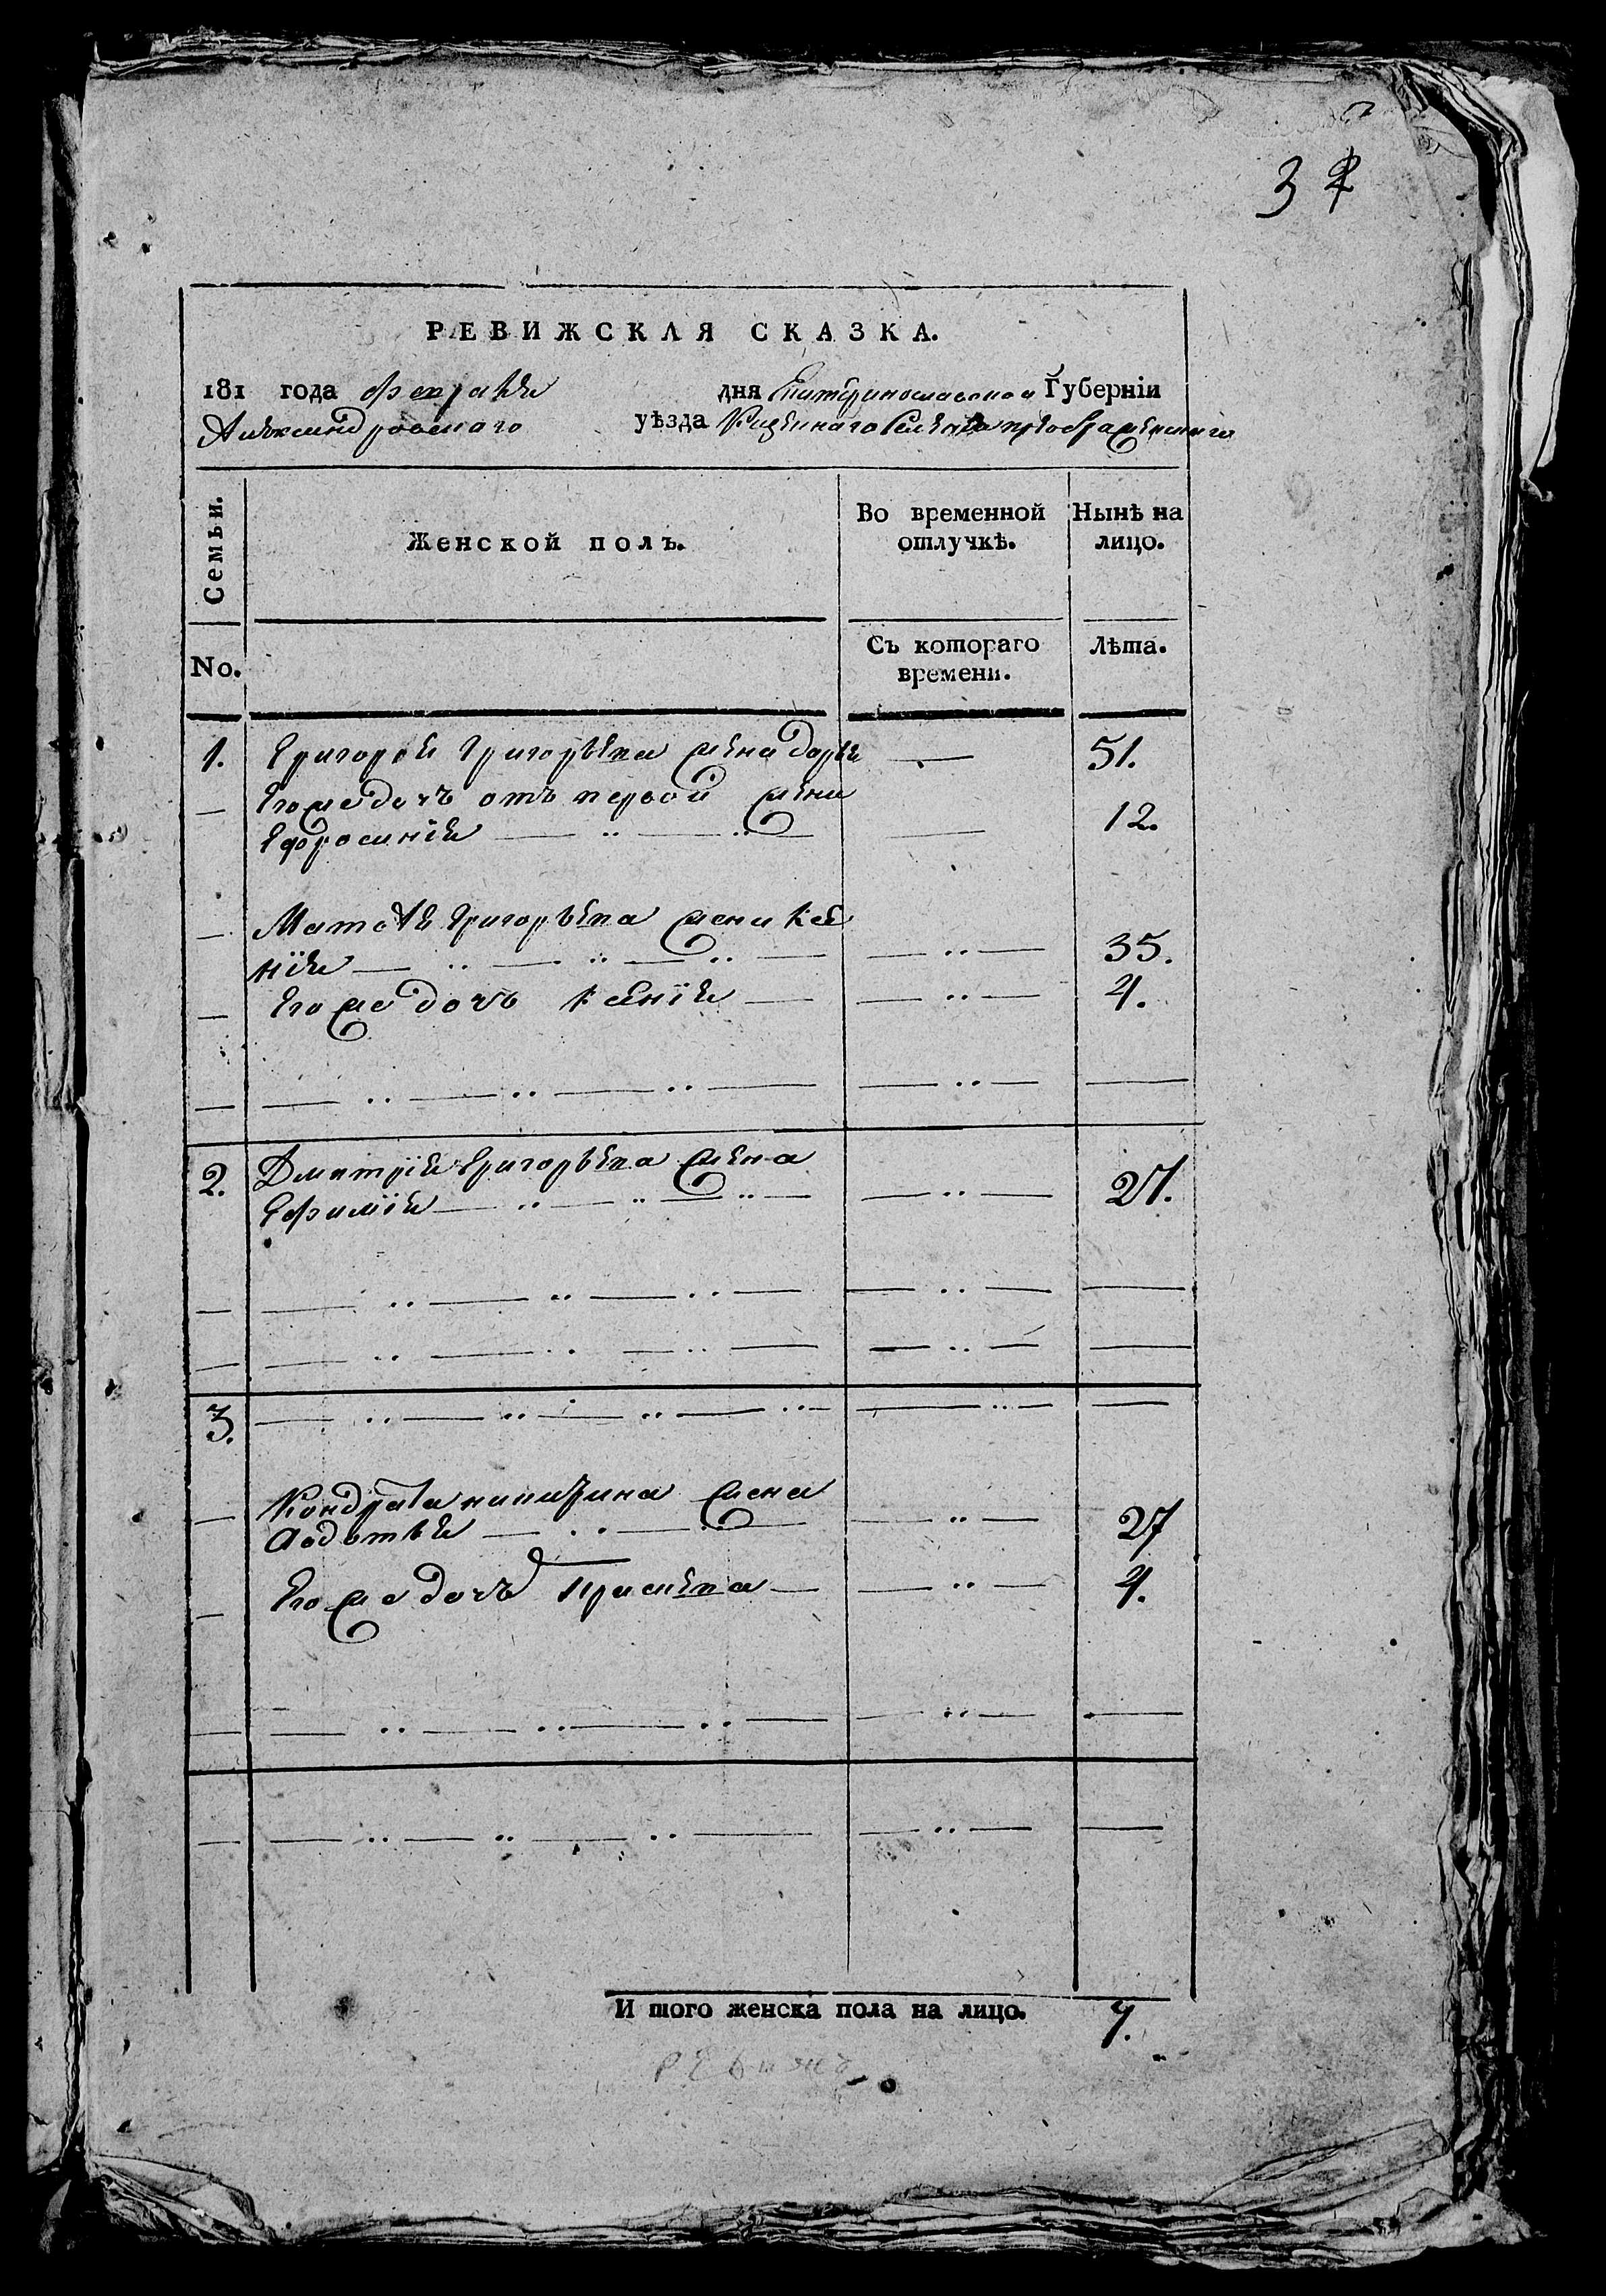 3
РЕВИЖСКАЯ СКАЗКА.
181 года февраля дня Екатеринославской Губерніи
Александровского уѣзда Казеннаго Селенія преображенкаго
Семьи.
Женской полъ.
Во временной отлучкѣ.
Нынѣ на лицо.
No.
Съ котораго времени.
Лѣта.
1. Григорея Григорьева жена дарья — 51.
Его же дочь отъ первой жены
Ефросинія — 12.
Матвѣя Григорьева жена Ксе
нія — 35.
Его же дочь Ксенія — 4.
2. Дмитрия Григорьева жена
Ефимія — 27.
3.
Кондрата жена
Авдотья — 27
Его же дочь — 4.
И того женска пола на лицо. 7.